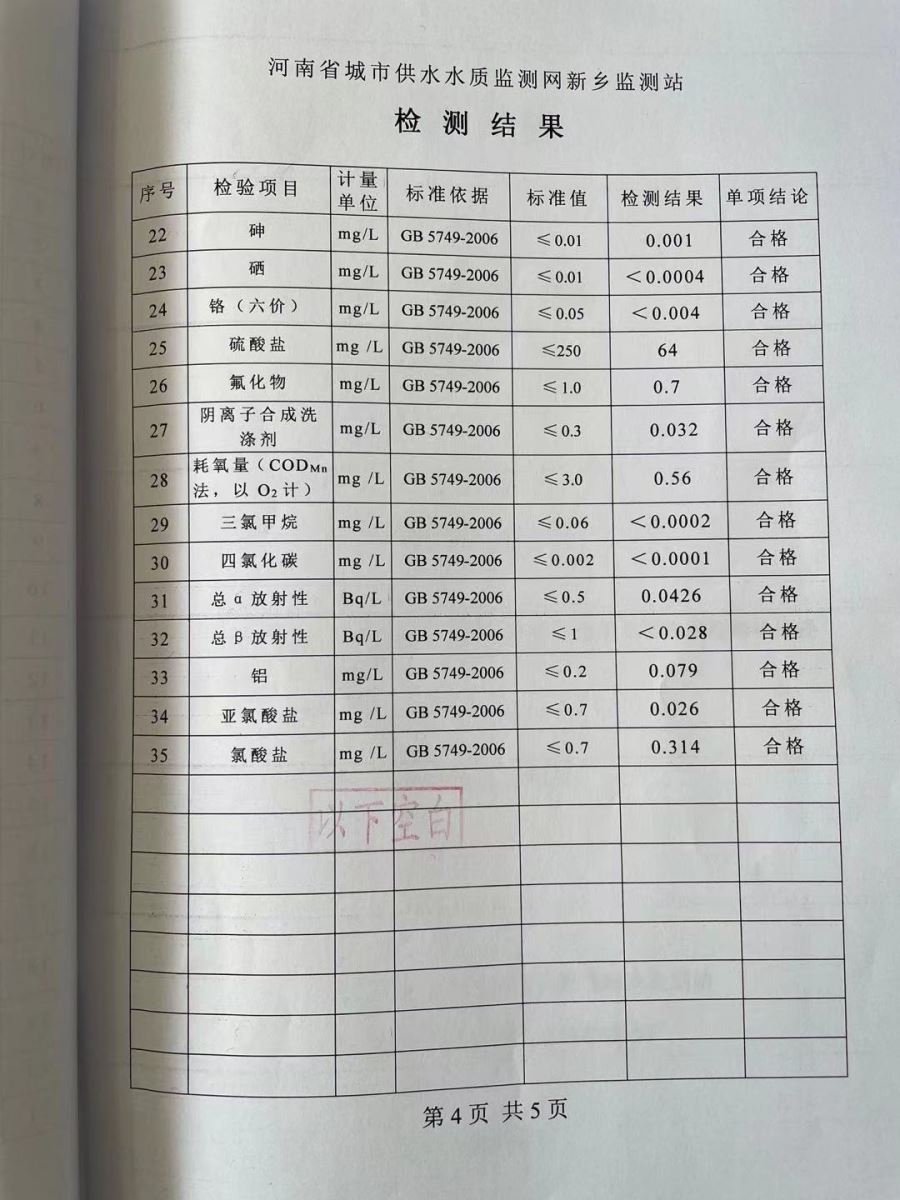 河南省城市供水水质监测网新乡监测站
检测结果
序号 检验项目 计量单位 标准依据 标准值 检测结果 单项结论
22 砷 mg/L GB 5749-2006 ≤0.01 0.001 合格
23 硒 mg/L GB 5749-2006 ≤0.01 <0.0004 合格
24 铬（六价） mg/L GB 5749-2006 ≤0.05 <0.004 合格
25 硫酸盐 mg /L GB 5749-2006 ≤250 64 合格
26 氟化物 mg/L GB 5749-2006 ≤1.0 0.7 合格
27 阴离子合成洗涤剂 mg/L GB 5749-2006 ≤0.3 0.032 合格
28 耗氧量（CODMn法，以 O2 计） mg /L GB 5749-2006 ≤3.0 0.56 合格
29 三氯甲烷 mg /L GB 5749-2006 ≤0.06 <0.0002 合格
30 四氯化碳 mg /L GB 5749-2006 ≤0.002 <0.0001 合格
31 总 α 放射性 Bq/L GB 5749-2006 ≤0.5 0.0426 合格
32 总 β 放射性 Bq/L GB 5749-2006 ≤1 <0.028 合格
33 铝 mg/L GB 5749-2006 ≤0.2 0.079 合格
34 亚氯酸盐 mg /L GB 5749-2006 ≤0.7 0.026 合格
35 氯酸盐 mg /L GB 5749-2006 ≤0.7 0.314 合格
以下空白
第 4 页 共 5 页